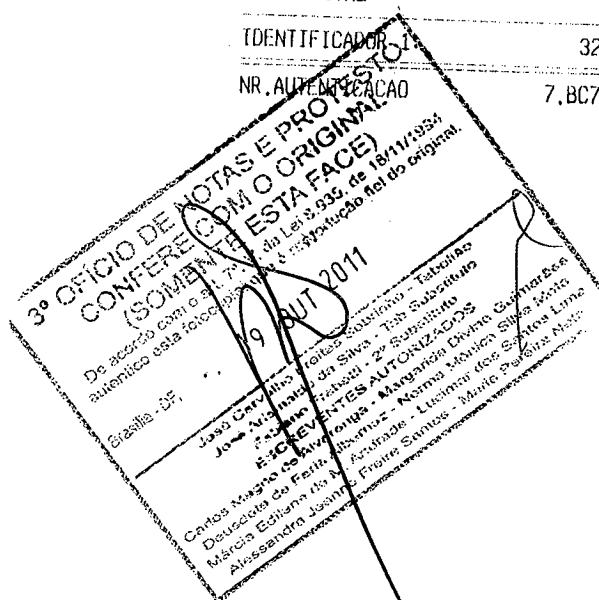 IDENTIFICADOR 1 32
NR.AUTENTICACAO 7.BC7
3º OFÍCIO DE NOTAS E PROTESTO
CONFERE COM O ORIGINAL
(SOMENTE ESTA FACE)
De acordo com o art. 7º, da Lei 8.935, de 18/11/1994
autentico esta reprodução fiel do original.
Brasília - DF, 9 OUT 2011
José Carvalho Freitas Sobrinho - Tabelião
José da Silva - Tab Substituto
- 2º Substituto
ESCREVENTES AUTORIZADOS
Carlos Magno de Alvarenga - Margarida Divino Guimarães
Deusdete de Faria Albernaz - Norma Mônica Silva Mota
Márcia Edilena do N. Andrade - Lucimar dos Santos Lima
Alessandra Jeanne Freire Santos - Mario Pereira Neto